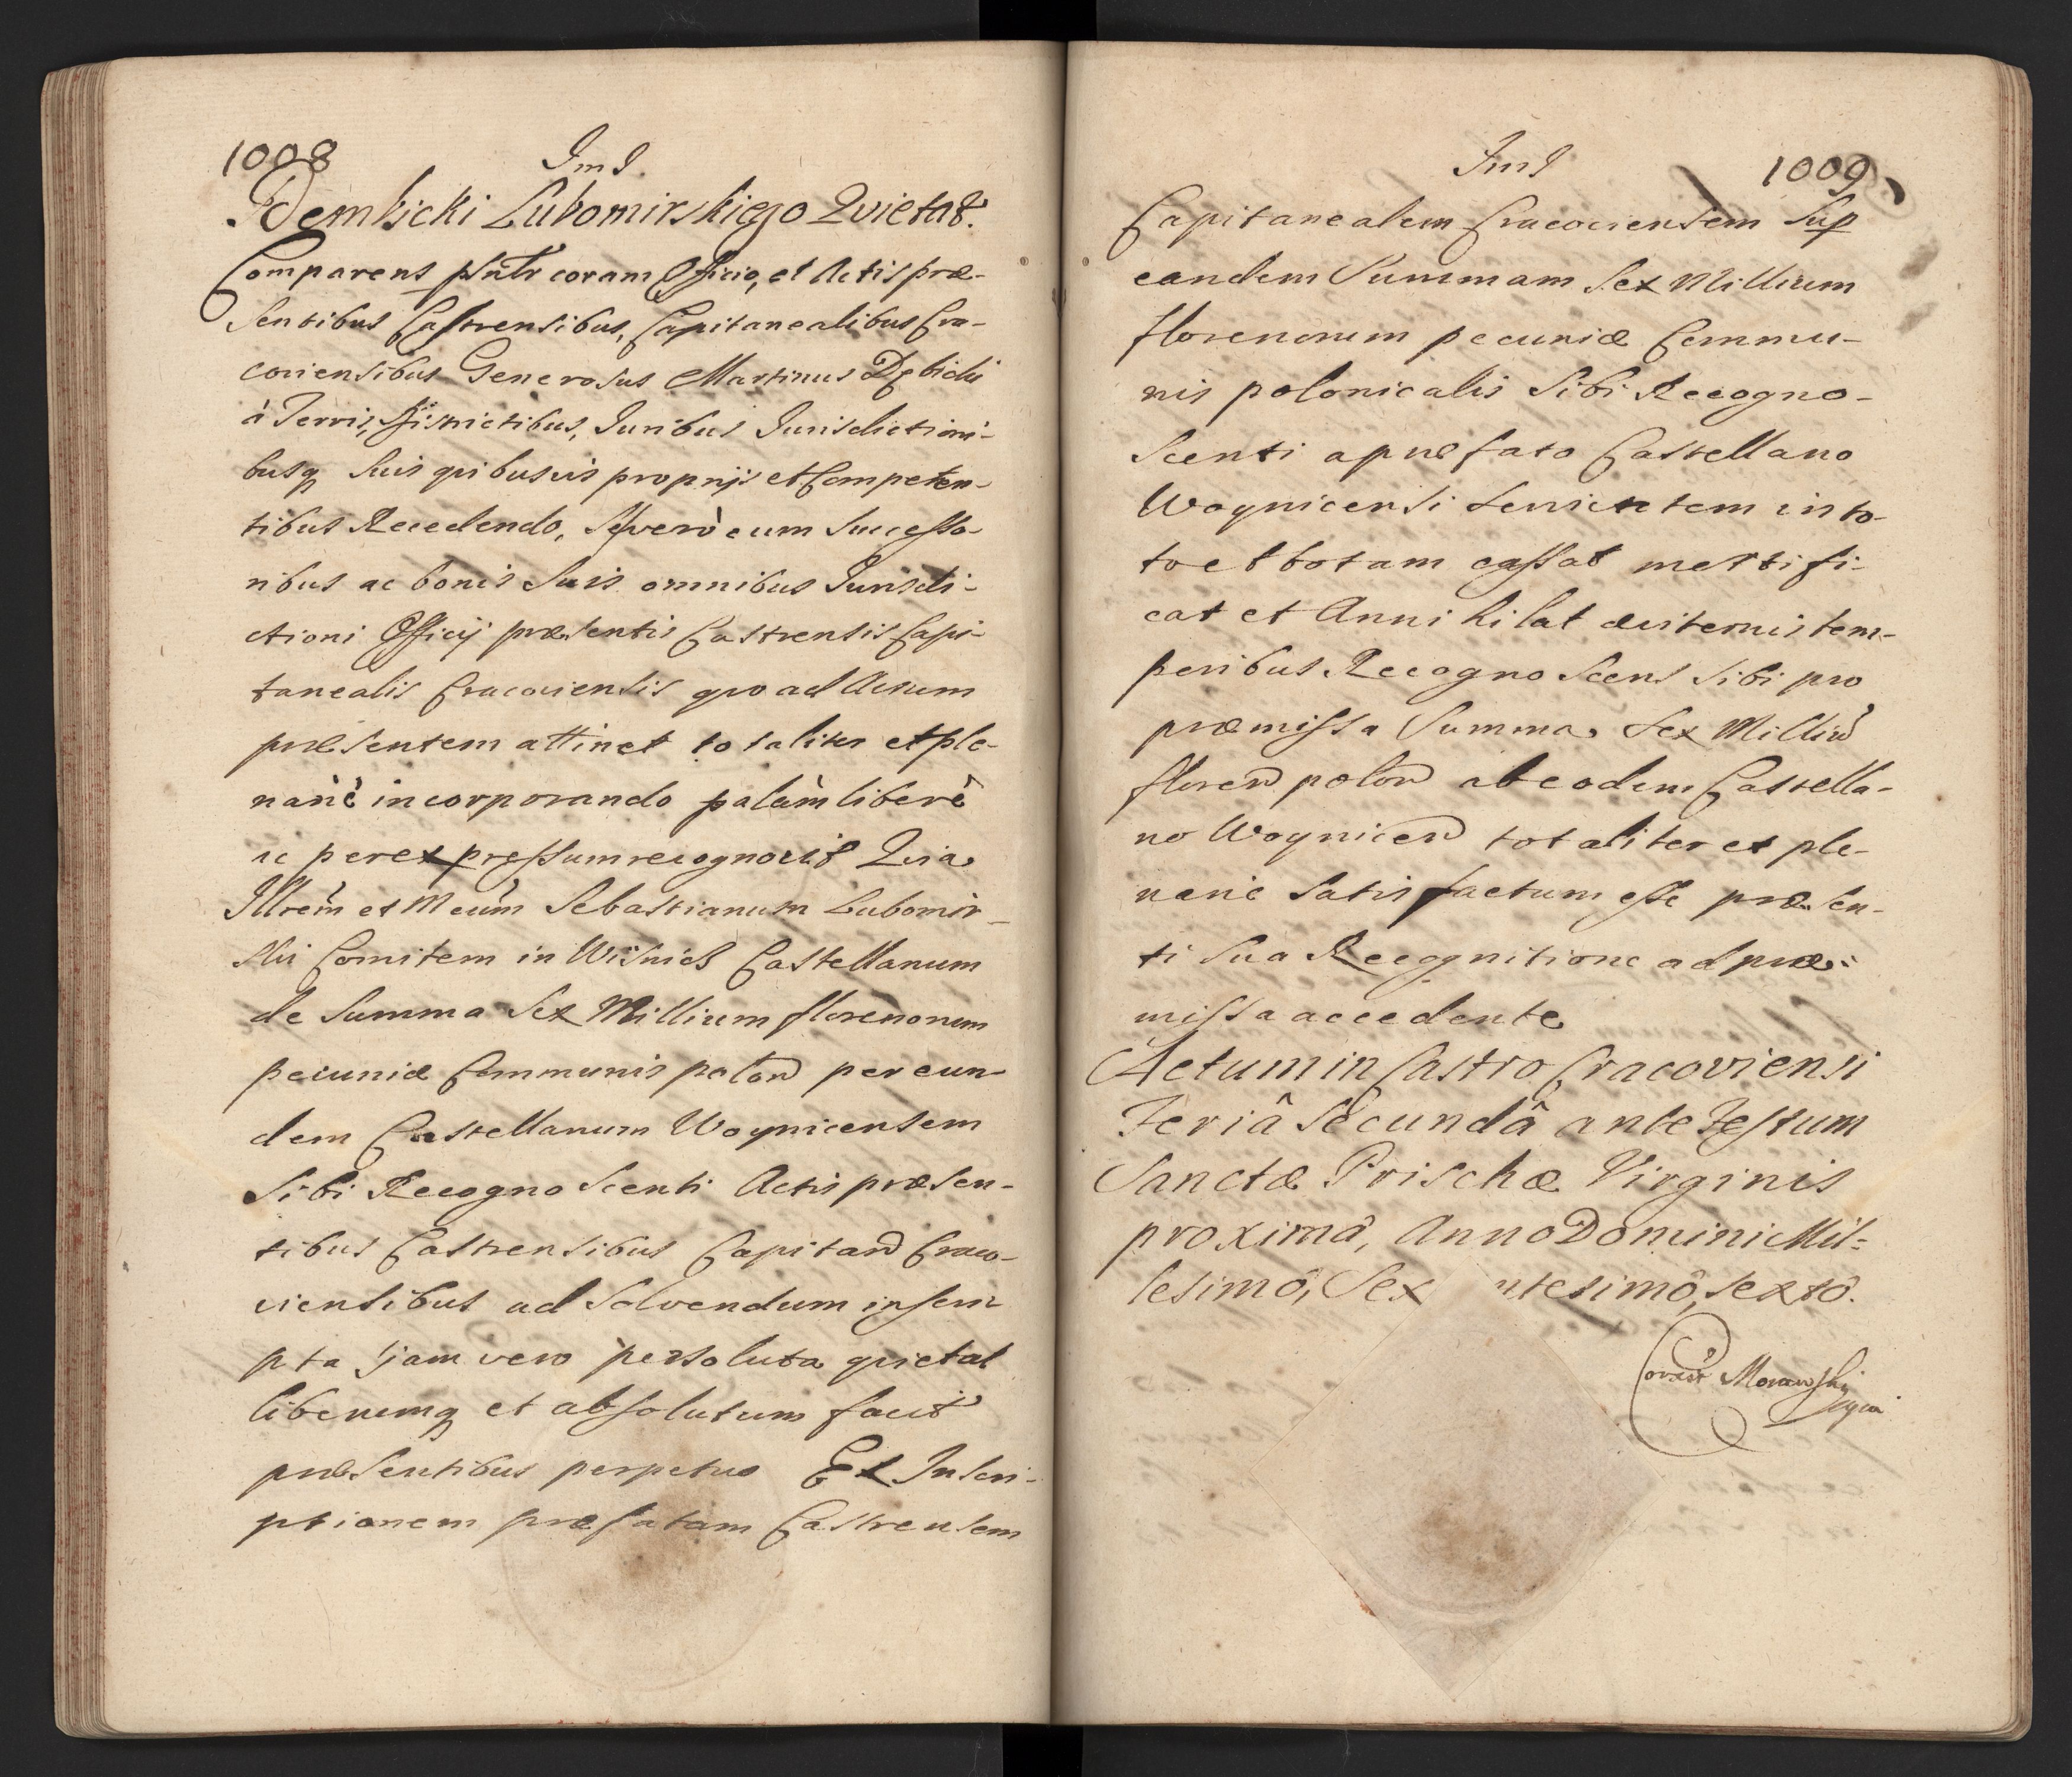 1008
JmJ.
Dembicki Lubomirskiego Quietat.
Comparens psnlr coram Officio, et Actis præ-
sentibus Castrensibus, Capitanealibus Cra-
coviensibus Generosus Martinus Dębicki
à Terris, Districtibus, Juribus Jurisdictioni-
busq suis quibusvis proprijs et Competen-
tibus Recedendo, se vero cum Successo-
ribus ac bonis suis omnibus Jurisdi-
ctioni Officij præsentis Castrensis Capi-
tanealis Cracoviensis quo ad Actum
præsentem attinet totaliter et ple-
nariè incorporando palàm liberè
ac per expressum recognovit Quia
Illrem et Mcum Sebastianum Lubomir-
ski Comitem in Wisnicz Castellanum
de Summa Sex Millium florenorum
pecuniæ Communis polon per eun-
dem Castellanum Woynicensem
Sibi Recognoscenti Actis præsen-
tibus Castrensibus Capitan Craco-
viensibus ad Solvendum inscri
pta jam vero persoluta quietat
liberumq et absolutum facit
præsentibus perpetuo Et Inscri-
ptionem præfatam Castrensem
JmJ
1009
Capitanealem Cracoviensem Sup
eandem Summam Sex Millium
florenorum pecuniæ Commu-
nis polonicalis Sibi Recogno-
scenti a præfato Castellano
Woynicensi servientem in to-
to et totam cassat mortifi-
cat et Annihilat æviternis tem-
poribus Recognoscens Sibi pro
præmissa Summa Sex Milliu
floren polon ab eodem Castella-
no Woynicen totaliter et ple-
narie Satisfactum esse præsen-
ti sua Recognitione ad præ-
missa accedente
Actum in Castro Cracoviensi
Feriâ Secundâ ante Festum
Sanctæ Prischæ Virginis
proximâ, Anno Domini Mil=
lesimô, Sex ntesimô, sextô.
Morawsky